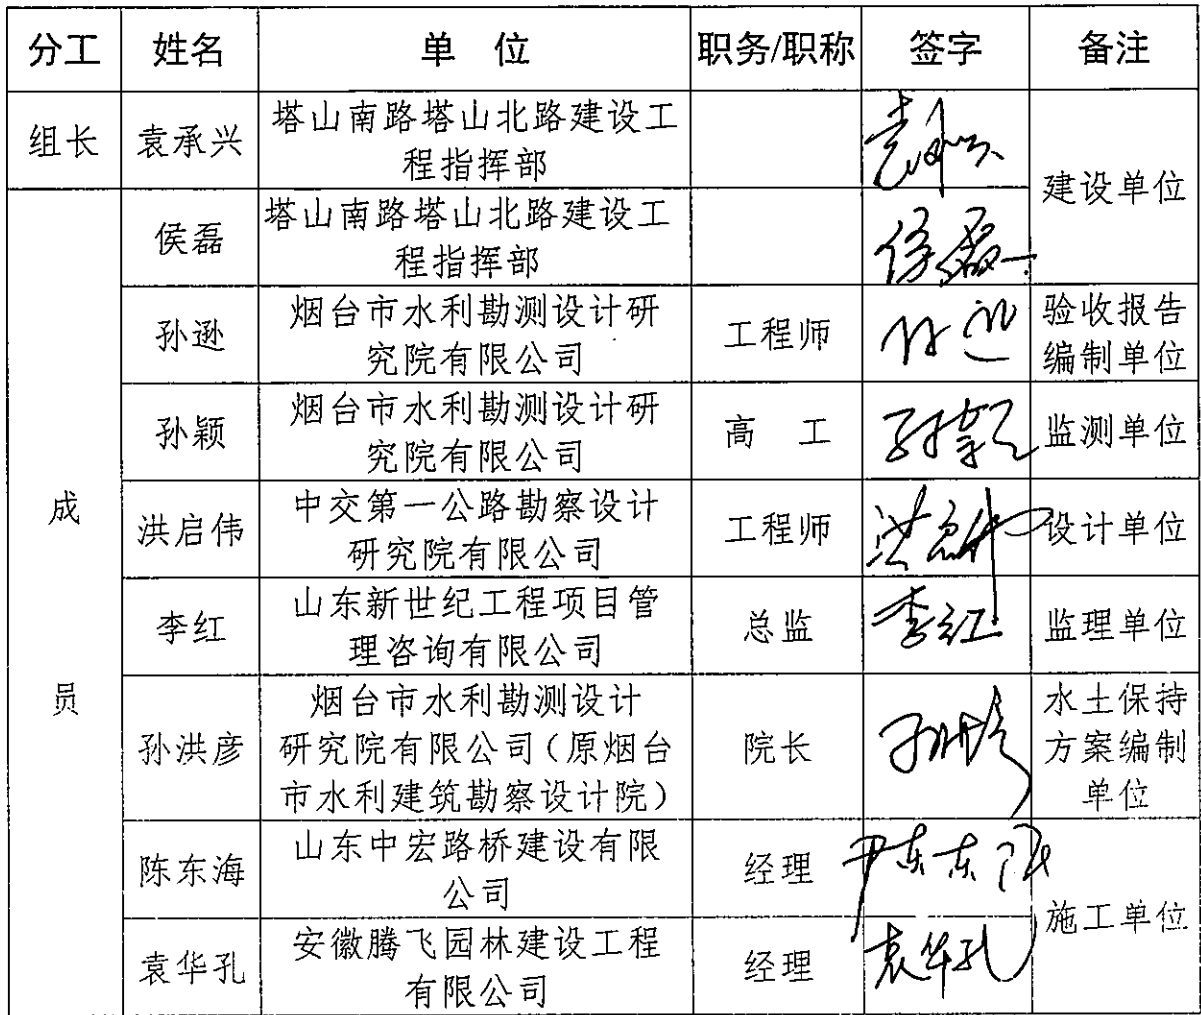 分工 姓名 单 位 职务/职称 签字 备注
组长 袁承兴 塔山南路塔山北路建设工
程指挥部
建设单位
侯磊 塔山南路塔山北路建设工
程指挥部
侯磊
成
员
孙逊 烟台市水利勘测设计研
究院有限公司
工程师
验收报告
编制单位
孙颖 烟台市水利勘测设计研
究院有限公司
高 工 孙颖 监测单位
洪启伟 中交第一公路勘察设计
研究院有限公司
工程师 设计单位
李红 山东新世纪工程项目管
理咨询有限公司
总监 李红 监理单位
孙洪彦 烟台市水利勘测设计
研究院有限公司（原烟台
市水利建筑勘察设计院）
院长
水土保持
方案编制
单位
陈东海 山东中宏路桥建设有限
公司
经理
施工单位
袁华孔 安徽腾飞园林建设工程
有限公司
经理 袁华孔